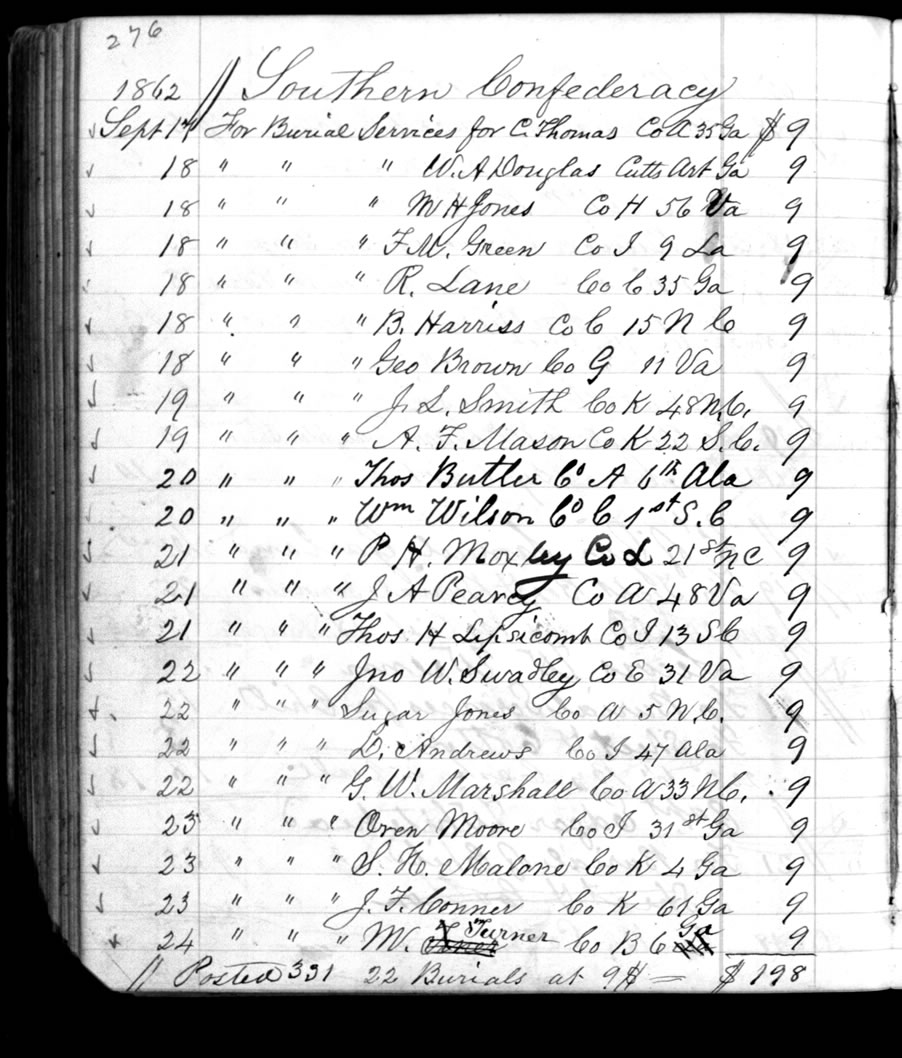 276
1862 // Southern Confederacy
Sept 17 For Burial Services for C. Thomas Co A 35 Ga $ 9
18 " " " W. A Douglas Cutts Art Ga 9
18 " " " M H Jones Co H 56 Va 9
18 " " " F. M. Green Co I 9 La 9
18 " " " R. Lane Co C 35 Ga 9
18 " " " B. Harriss Co C 15 N C 9
18 " " " Geo Brown Co G 11 Va 9
19 " " " J. L. Smith Co K 48 N.C. 9
19 " " " A. F. Mason Co K 22 S.C. 9
20 " " " Thos Butler Co A 6th Ala 9
20 " " " Wm Wilson Co C 1st S. C 9
21 " " " P H. Moxley Co L 21st NC 9
21 " " " J A Pearcy Co A 48 Va 9
21 " " " Thos H Lipsicomb Co I 13 S C 9
22 " " " Jno W. Swadley Co E 31 Va 9
22 " " " Sugar Jones Co A 5 N.C. 9
22 " " " D. Andrews Co I 47 Ala 9
22 " " " G. W. Marshall Co A 33 N C. 9
23 " " " Oren Moore Co I 31st Ga 9
23 " " " S. H. Malone Co K 4 Ga 9
23 " " " J. F. Conner Co K 61 Ga 9
24 " " " M. Turner Co B 6 Ga 9
// Posted 331 22 Burials at 9$ — $ 198